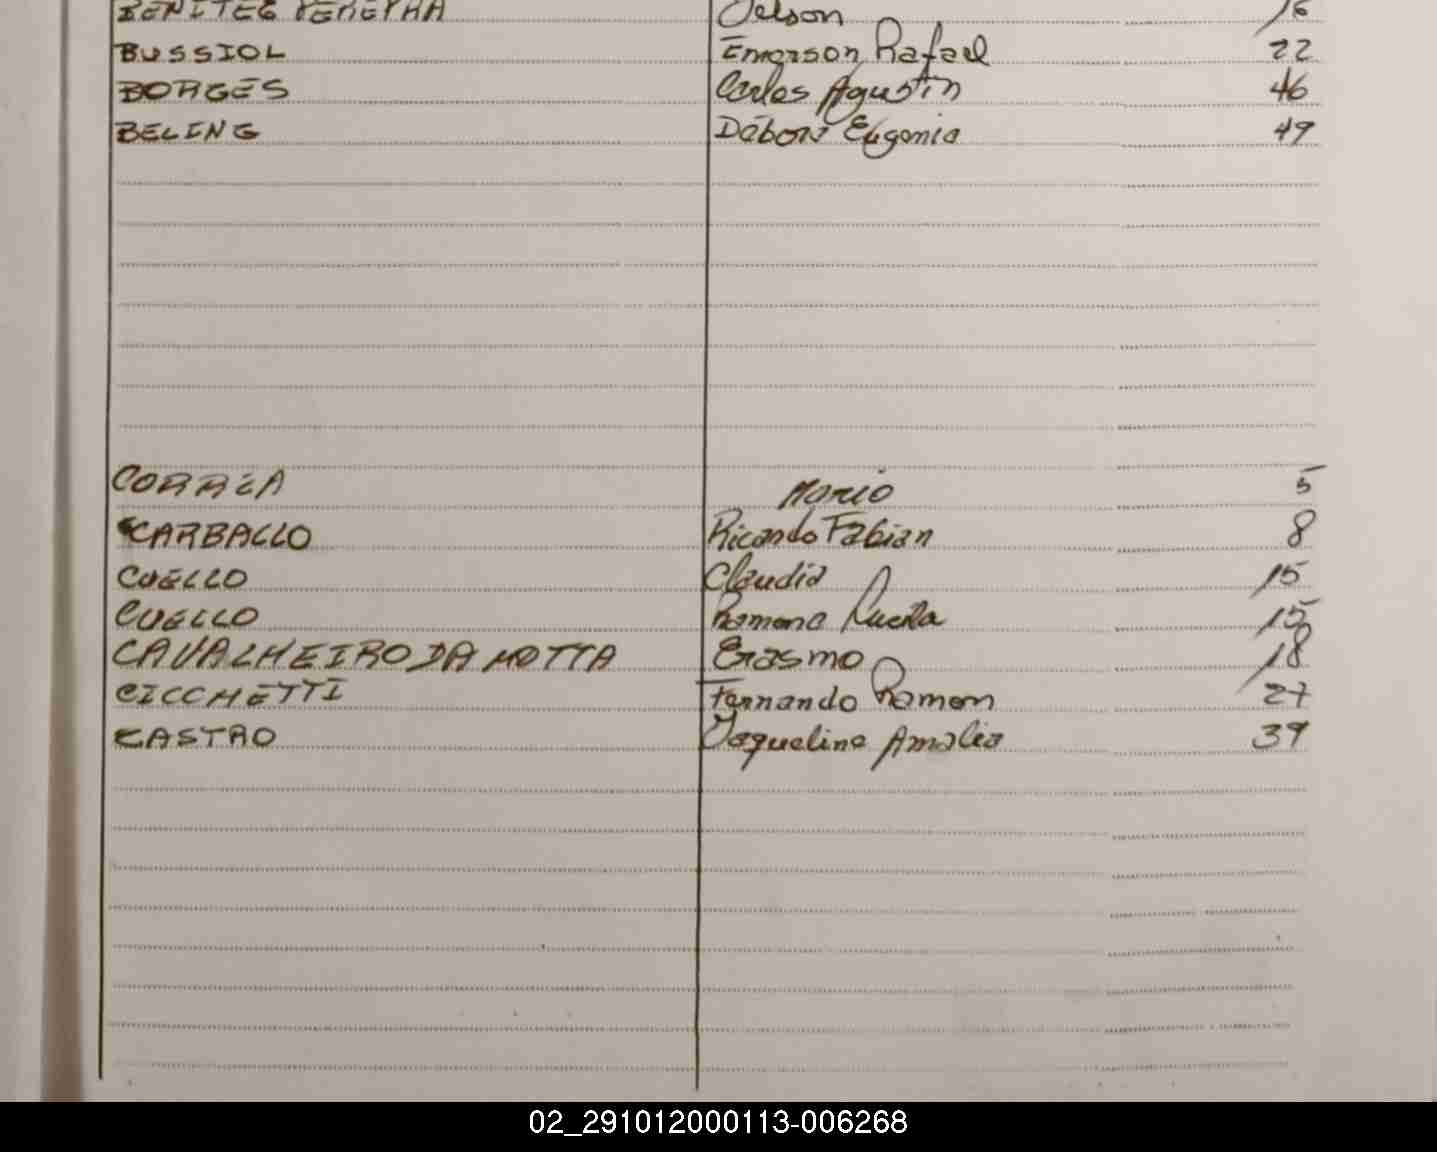 BENITEZ PEREYRA Nelson 16
BUSSIOL Emerson Rafael 22
BORGES Carlos Agustin 46
BELING Débora Eugenia 49
CORREA Mario 5
CARBALLO Ricardo Fabian 8
CUELLO Claudia 15
CUELLO Ramona 15
CAVALHEIRO DA MOTTA Erasmo 18
CICCHETTI Fernando Ramon 27
CASTRO Jaqueline Amalia 39
02_291012000113-006268